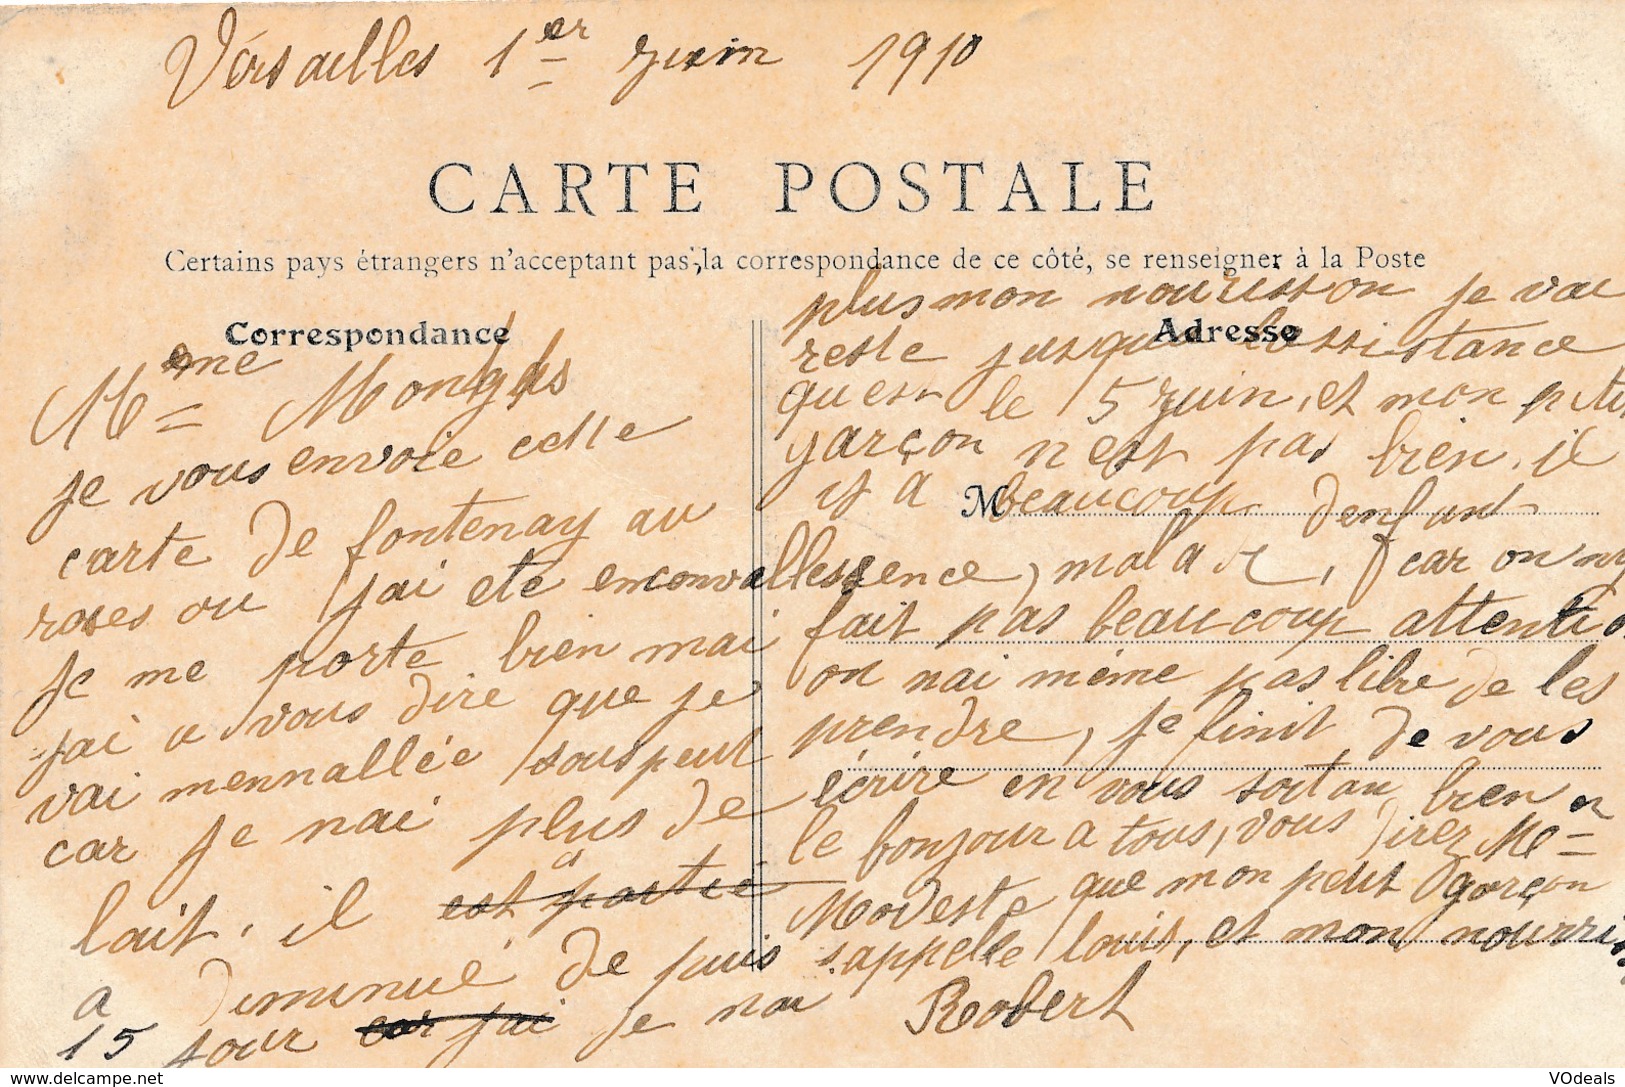 Versailles 1er juin 1910
CARTE POSTALE
Certains pays étrangers n'acceptant pas la correspondance de ce côté, se renseigner à la Poste
Correspondance
Mme
je vous envoie cette
carte de fontenay au
roses ou jai eté enconvallessence,
je me porte bien mai
jai a vous dire que je
vai mennallée souspeut
car je nai plus de
lait, il est partie
a diminué de puis
15 jour car jai je nai
Adresse
plus mon nourisson je vai
reste jusqua lassistance
quest le 5 juin, et mon petit
garçon n'est pas bien, il
M
y a beaucoup denfant
malade, car on ny
fait pas beaucoup attention
on nai même pas libre de les
prendre, je finit de vous
écrire en vous soitan bien
le bonjour a tous, vous direz Me
Modeste que mon petit garçon
sappelle louis, et mon nourris
Robert
VOdeals
https://www.delcampe.net